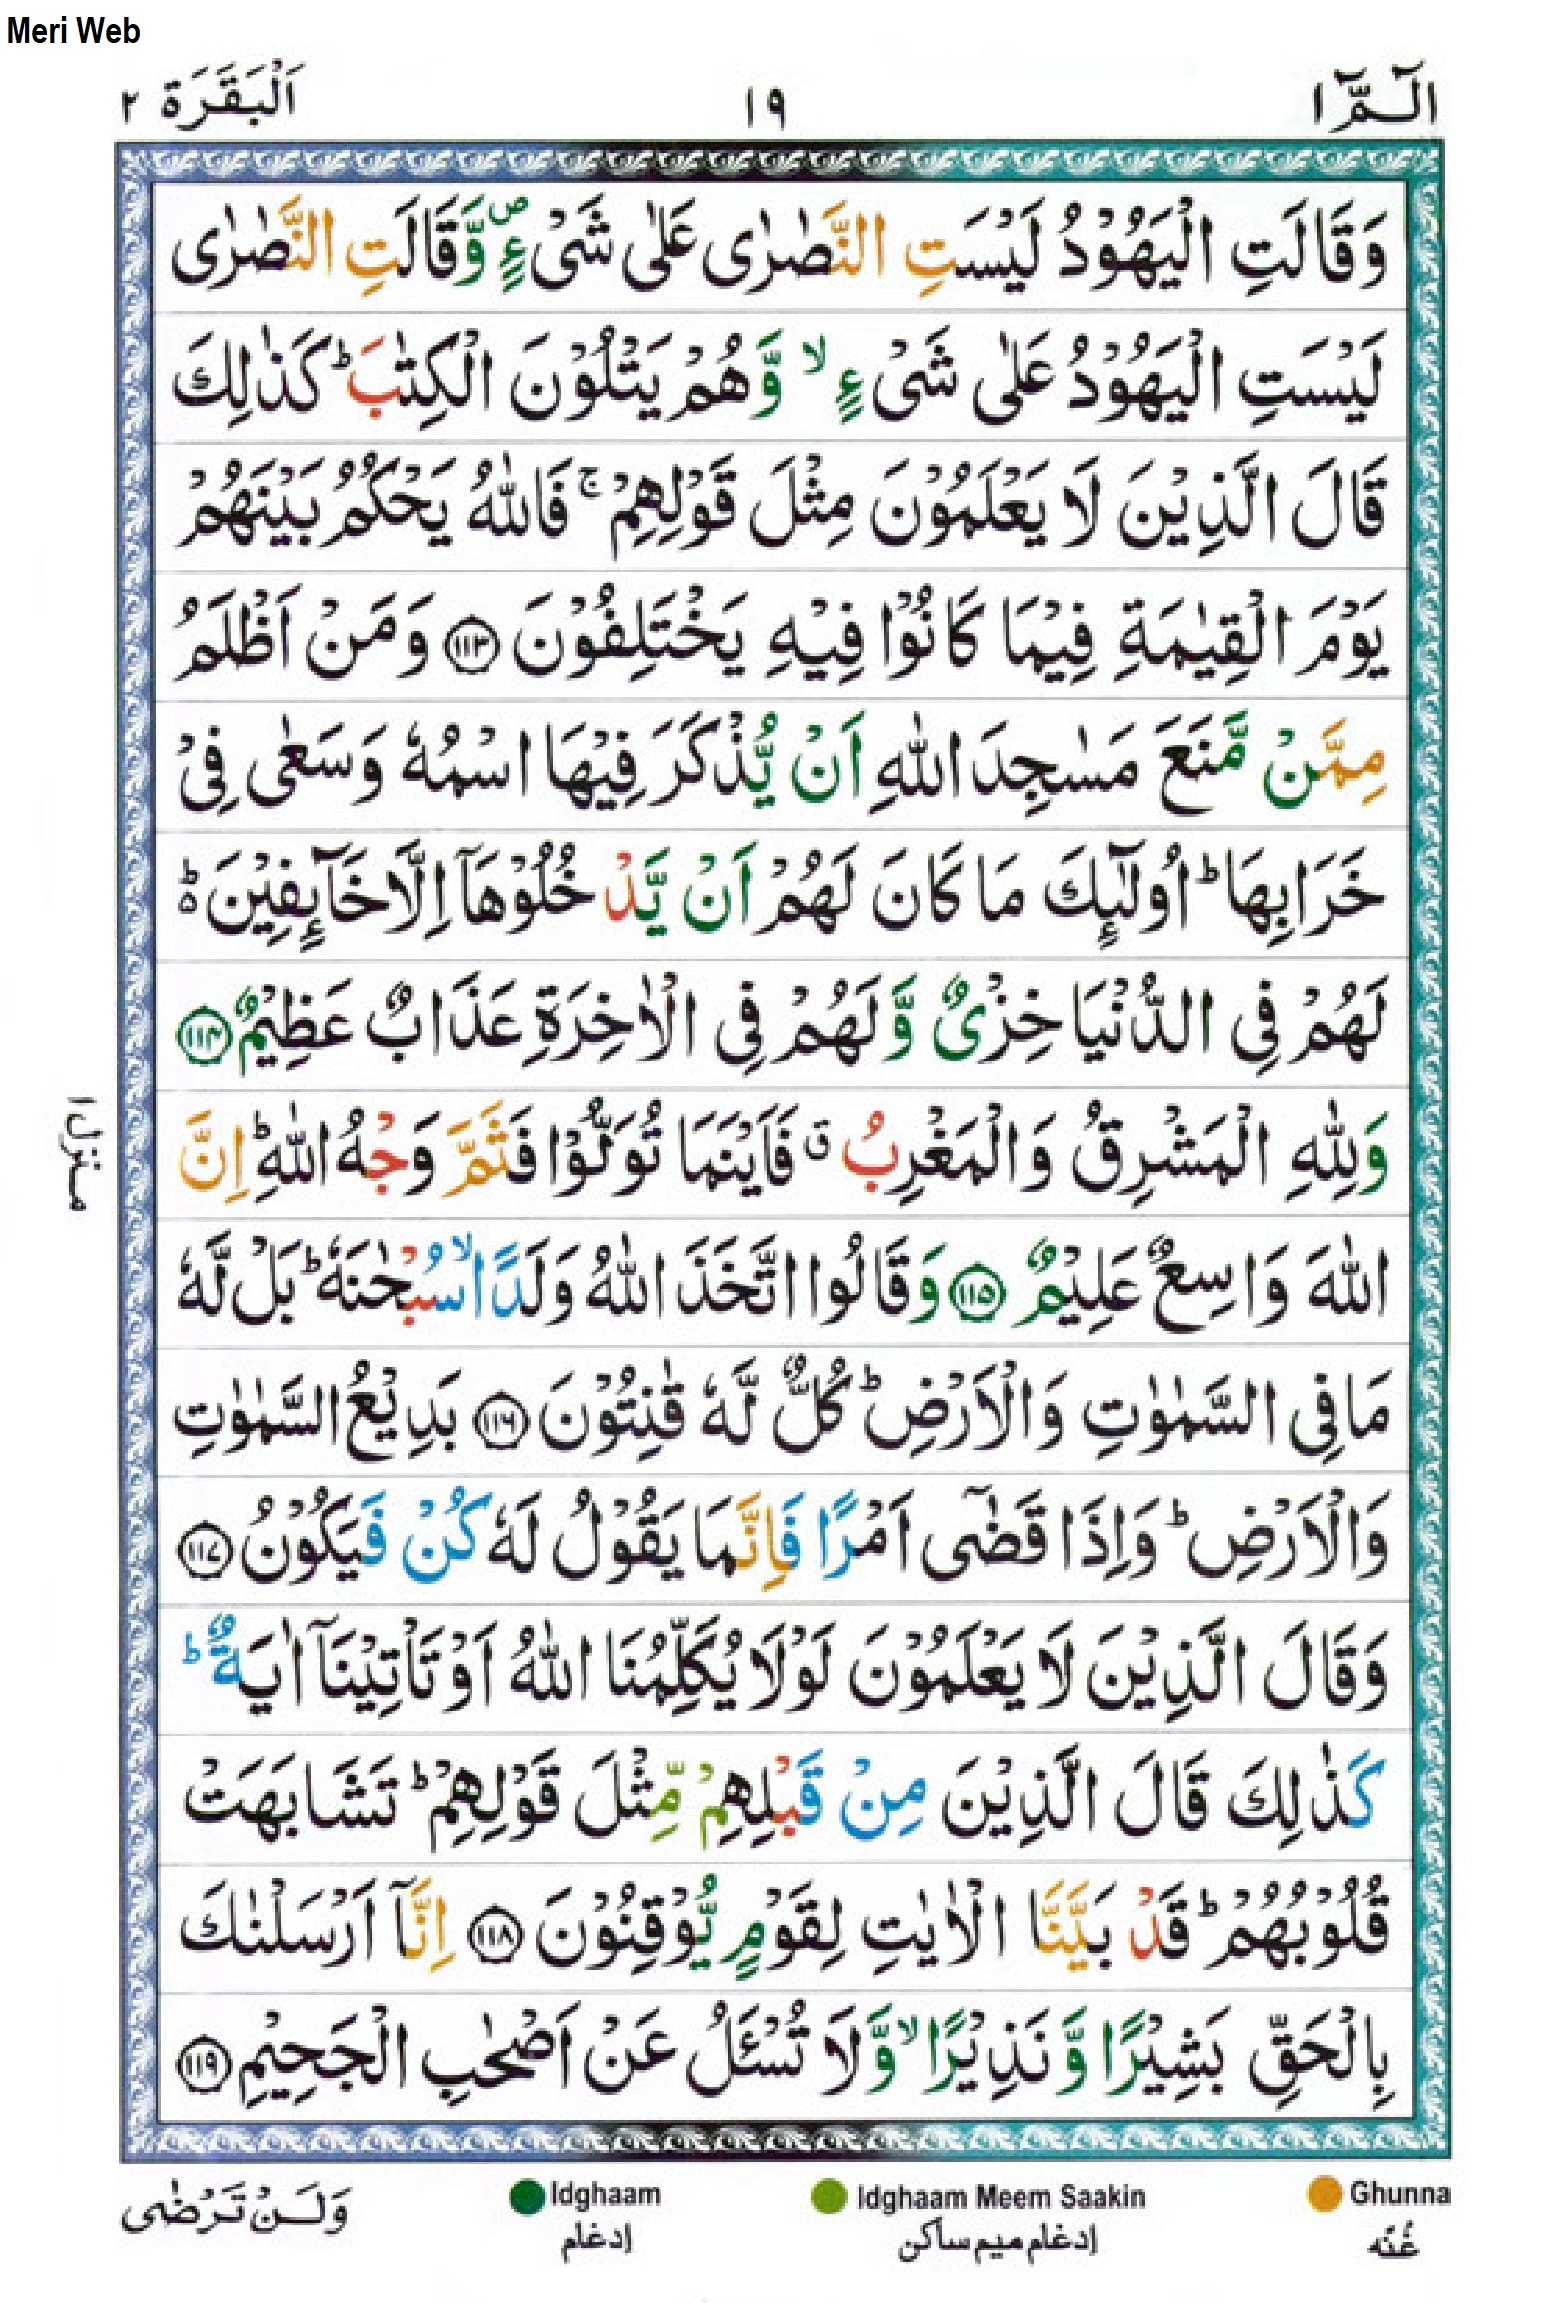 Meri Web
الٓـمّٓ ۱ ۱۹ اَلْبَقَرَة ۲
وَقَالَتِ الْیَهُوْدُ لَیْسَتِ النَّصٰرٰی عَلٰی شَیْءٍ ۪ وَّقَالَتِ النَّصٰرٰی
لَیْسَتِ الْیَهُوْدُ عَلٰی شَیْءٍ ۙ وَّهُمْ یَتْلُوْنَ الْكِتٰبَ ؕ كَذٰلِكَ
قَالَ الَّذِیْنَ لَا یَعْلَمُوْنَ مِثْلَ قَوْلِهِمْ ۚ فَاللّٰهُ یَحْكُمُ بَیْنَهُمْ
یَوْمَ الْقِیٰمَةِ فِیْمَا كَانُوْا فِیْهِ یَخْتَلِفُوْنَ ۝۱۱۳ وَمَنْ اَظْلَمُ
مِمَّنْ مَّنَعَ مَسٰجِدَ اللّٰهِ اَنْ یُّذْكَرَ فِیْهَا اسْمُهٗ وَسَعٰی فِیْ
خَرَابِهَا ؕ اُولٰٓىِٕكَ مَا كَانَ لَهُمْ اَنْ یَّدْخُلُوْهَاۤ اِلَّا خَآىِٕفِیْنَ ؕ۬
لَهُمْ فِی الدُّنْیَا خِزْیٌ وَّلَهُمْ فِی الْاٰخِرَةِ عَذَابٌ عَظِیْمٌ ۝۱۱۴
وَلِلّٰهِ الْمَشْرِقُ وَالْمَغْرِبُ ۗ فَاَیْنَمَا تُوَلُّوْا فَثَمَّ وَجْهُ اللّٰهِ ؕ اِنَّ
اللّٰهَ وَاسِعٌ عَلِیْمٌ ۝۱۱۵ وَقَالُوا اتَّخَذَ اللّٰهُ وَلَدًا ۙ سُبْحٰنَهٗ ؕ بَلْ لَّهٗ
مَا فِی السَّمٰوٰتِ وَالْاَرْضِ ؕ كُلٌّ لَّهٗ قٰنِتُوْنَ ۝۱۱۶ بَدِیْعُ السَّمٰوٰتِ
وَالْاَرْضِ ؕ وَاِذَا قَضٰۤی اَمْرًا فَاِنَّمَا یَقُوْلُ لَهٗ كُنْ فَیَكُوْنُ ۝۱۱۷
وَقَالَ الَّذِیْنَ لَا یَعْلَمُوْنَ لَوْلَا یُكَلِّمُنَا اللّٰهُ اَوْ تَاْتِیْنَاۤ اٰیَةٌ ؕ
كَذٰلِكَ قَالَ الَّذِیْنَ مِنْ قَبْلِهِمْ مِّثْلَ قَوْلِهِمْ ؕ تَشَابَهَتْ
قُلُوْبُهُمْ ؕ قَدْ بَیَّنَّا الْاٰیٰتِ لِقَوْمٍ یُّوْقِنُوْنَ ۝۱۱۸ اِنَّاۤ اَرْسَلْنٰكَ
بِالْحَقِّ بَشِیْرًا وَّنَذِیْرًا ۙ وَّلَا تُسْـَٔلُ عَنْ اَصْحٰبِ الْجَحِیْمِ ۝۱۱۹
منزل ۱
وَلَنْ تَرْضٰی
Idghaam
ادغام
Idghaam Meem Saakin
ادغام میم ساکن
Ghunna
غُنّه